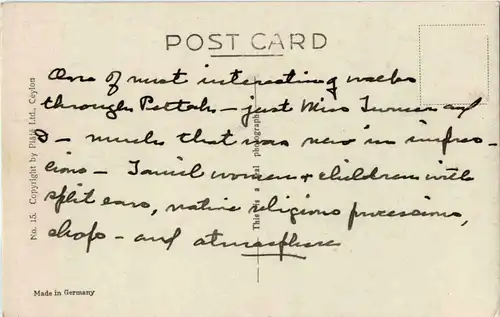 POST CARD
One of most interesting walks
through Pettah - just Miss Turner and
I - much that was new in impres-
sions - Tamil women + children with
split ears, native religious processions,
shops - and atmosphere
No. 15. Copyright by Plâté Ltd., Ceylon
This is a real photograph
Made in Germany